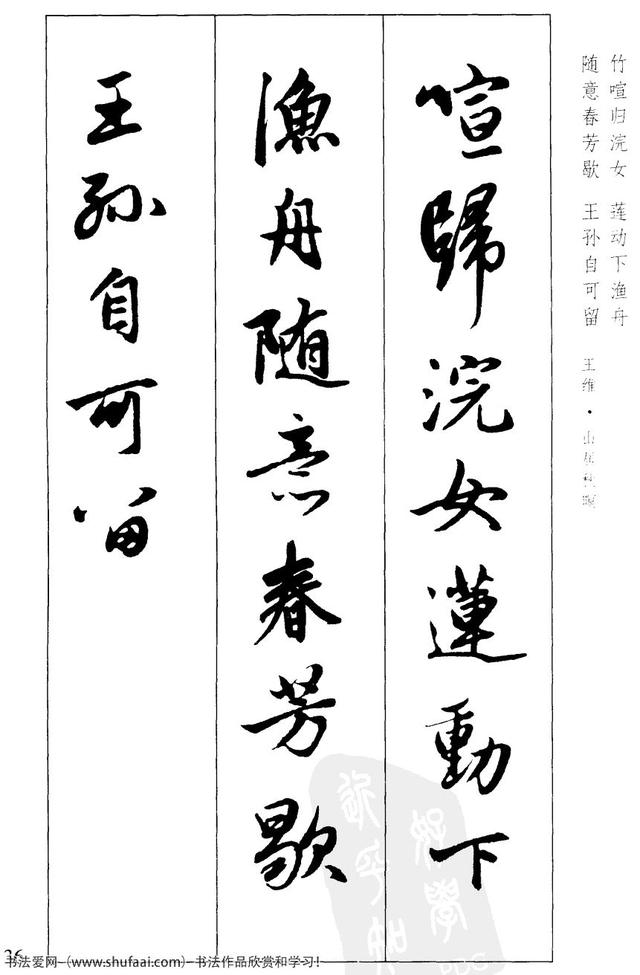 竹喧归浣女 莲动下渔舟
随意春芳歇 王孙自可留 王维·山居秋暝
喧歸浣女蓮動下
漁舟随意春芳歇
王孫自可留
好學
近乎知
36
书法爱网-(www.shufaai.com)-书法作品欣赏和学习!